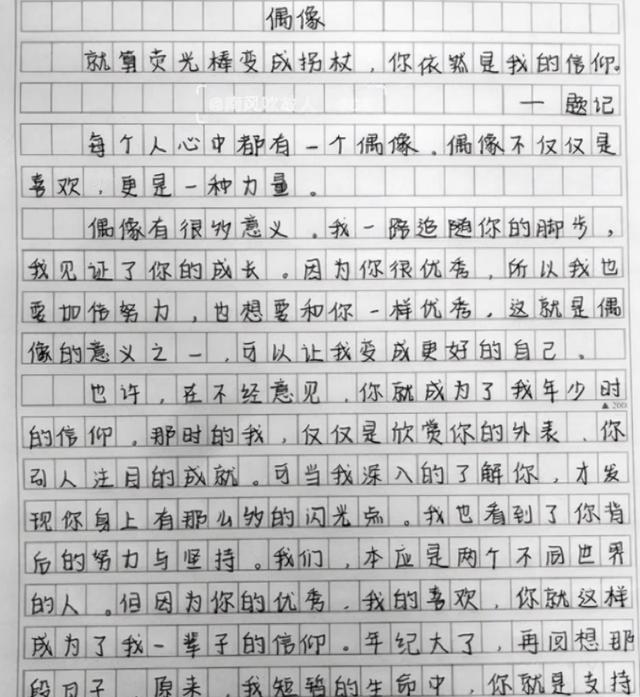 偶像
就算荧光棒变成拐杖，你依然是我的信仰。
— 题记
每个人心中都有一个偶像．偶像不仅仅是
喜欢，更是一种力量。
偶像有很多意义．我一路追随你的脚步，
我见证了你的成长。因为你很优秀，所以我也
要加倍努力，也想要和你一样优秀．这就是偶
像的意义之一，可以让我变成更好的自己。
也许，在不经意见，你就成为了我年少时
▲200
的信仰．那时的我，仅仅是欣赏你的外表、你
引人注目的成就。可当我深入的了解你，才发
现你身上有那么多的闪光点。我也看到了你背
后的努力与坚持。我们，本应是两个不同世界
的人。但因为你的优秀．我的喜欢，你就这样
成为了我一辈子的信仰．年纪大了，再回想那
段日子，原来，我短暂的生命中，你就是支持